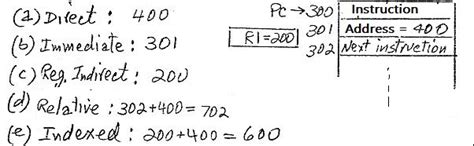 (a) Direct : 400
(b) Immediate : 301
(c) Reg. Indirect : 200
(d) Relative : 302+400 = 702
(e) Indexed : 200+400 = 600
PC → 300 Instruction
R1=200 301 Address = 400
302 Next instruction